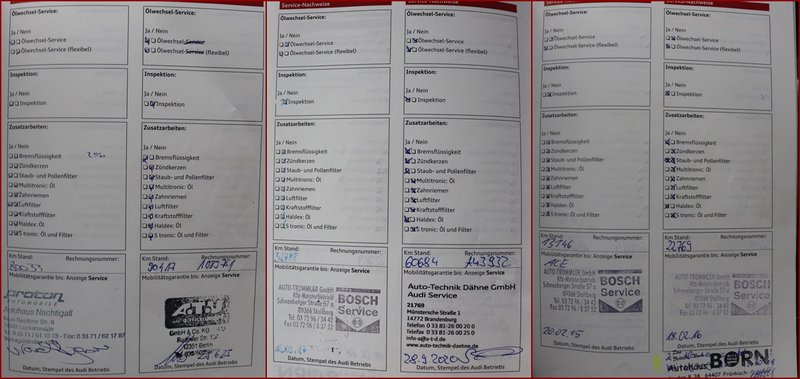 Ölwechsel-Service:
Ja / Nein
Ölwechsel-Service
Ölwechsel-Service (flexibel)
Inspektion:
Ja / Nein
Inspektion
Zusatzarbeiten:
Ja / Nein
Bremsflüssigkeit
Zündkerzen
Staub- und Pollenfilter
Multitronic: Öl
Zahnriemen
Luftfilter
Kraftstofffilter
Haldex: Öl
S tronic: Öl und Filter
Km Stand: Rechnungsnummer:
Mobilitätsgarantie bis: Anzeige Service
proton
AUTOMOBILE
Autohaus Nachtigall
Datum, Stempel des Audi Betriebs
Ölwechsel-Service:
Ja / Nein
Ölwechsel-Service
Ölwechsel-Service (flexibel)
Inspektion:
Ja / Nein
Inspektion
Zusatzarbeiten:
Ja / Nein
Bremsflüssigkeit
Zündkerzen
Staub- und Pollenfilter
Multitronic: Öl
Zahnriemen
Luftfilter
Kraftstofffilter
Haldex: Öl
S tronic: Öl und Filter
Km Stand: Rechnungsnummer:
Mobilitätsgarantie bis: Anzeige Service
GmbH & Co. KG
12351 Berlin
Datum, Stempel des Audi Betriebs
Service-Nachweise
Ölwechsel-Service:
Ja / Nein
Ölwechsel-Service
Ölwechsel-Service (flexibel)
Inspektion:
Ja / Nein
Inspektion
Zusatzarbeiten:
Ja / Nein
Bremsflüssigkeit
Zündkerzen
Staub- und Pollenfilter
Multitronic: Öl
Zahnriemen
Luftfilter
Kraftstofffilter
Haldex: Öl
S tronic: Öl und Filter
Km Stand: Rechnungsnummer:
Mobilitätsgarantie bis: Anzeige Service
AUTO-TROMMLER GmbH
Kfz-Meisterbetrieb
Schneeberger Straße 57 a
09366 Stollberg
Tel. 03 72 96 / 34 42
Fax 03 72 96 / 8 37 52
BOSCH
Service
Datum, Stempel des Audi Betriebs
Ölwechsel-Service:
Ja / Nein
Ölwechsel-Service
Ölwechsel-Service (flexibel)
Inspektion:
Ja / Nein
Inspektion
Zusatzarbeiten:
Ja / Nein
Bremsflüssigkeit
Zündkerzen
Staub- und Pollenfilter
Multitronic: Öl
Zahnriemen
Luftfilter
Kraftstofffilter
Haldex: Öl
S tronic: Öl und Filter
Km Stand: Rechnungsnummer:
60684 143932
Mobilitätsgarantie bis: Anzeige Service
Auto-Technik Dähne GmbH
Audi Service
21769
Münstersche Straße 1
14772 Brandenburg
Telefon 0 33 81-26 00 20 0
Telefax 0 33 81-26 00 20 0
info-a@a-t-d.de
www.auto-technik-daehne.de
28.9.2020
Datum, Stempel des Audi Betriebs
Service-Nachweise
Ölwechsel-Service:
Ja / Nein
Ölwechsel-Service
Ölwechsel-Service (flexibel)
Inspektion:
Ja / Nein
Inspektion
Zusatzarbeiten:
Ja / Nein
Bremsflüssigkeit
Zündkerzen
Staub- und Pollenfilter
Multitronic: Öl
Zahnriemen
Luftfilter
Kraftstofffilter
Haldex: Öl
S tronic: Öl und Filter
Km Stand: Rechnungsnummer:
13146
Mobilitätsgarantie bis: Anzeige Service
ACE
AUTO-TROMMLER GmbH
Kfz-Meisterbetrieb
Schneeberger Straße 57 a
09366 Stollberg
Tel. 03 72 96 / 34 42
Fax 03 72 96 / 8 37 52
BOSCH
Service
20.02.15
Datum, Stempel des Audi Betriebs
Ölwechsel-Service:
Ja / Nein
Ölwechsel-Service
Ölwechsel-Service (flexibel)
Inspektion:
Ja / Nein
Inspektion
Zusatzarbeiten:
Ja / Nein
Bremsflüssigkeit
Zündkerzen
Staub- und Pollenfilter
Multitronic: Öl
Zahnriemen
Luftfilter
Kraftstofffilter
Haldex: Öl
S tronic: Öl und Filter
Km Stand: Rechnungsnummer:
22769
Mobilitätsgarantie bis: Anzeige Service
AUTO-TROMMLER GmbH
Kfz-Meisterbetrieb
Schneeberger Straße 57 a
09366 Stollberg
Tel. 03 72 96 / 34 42
Fax 03 72 96 / 8 37 52
BOSCH
Service
18.02.16
Autohaus BORN